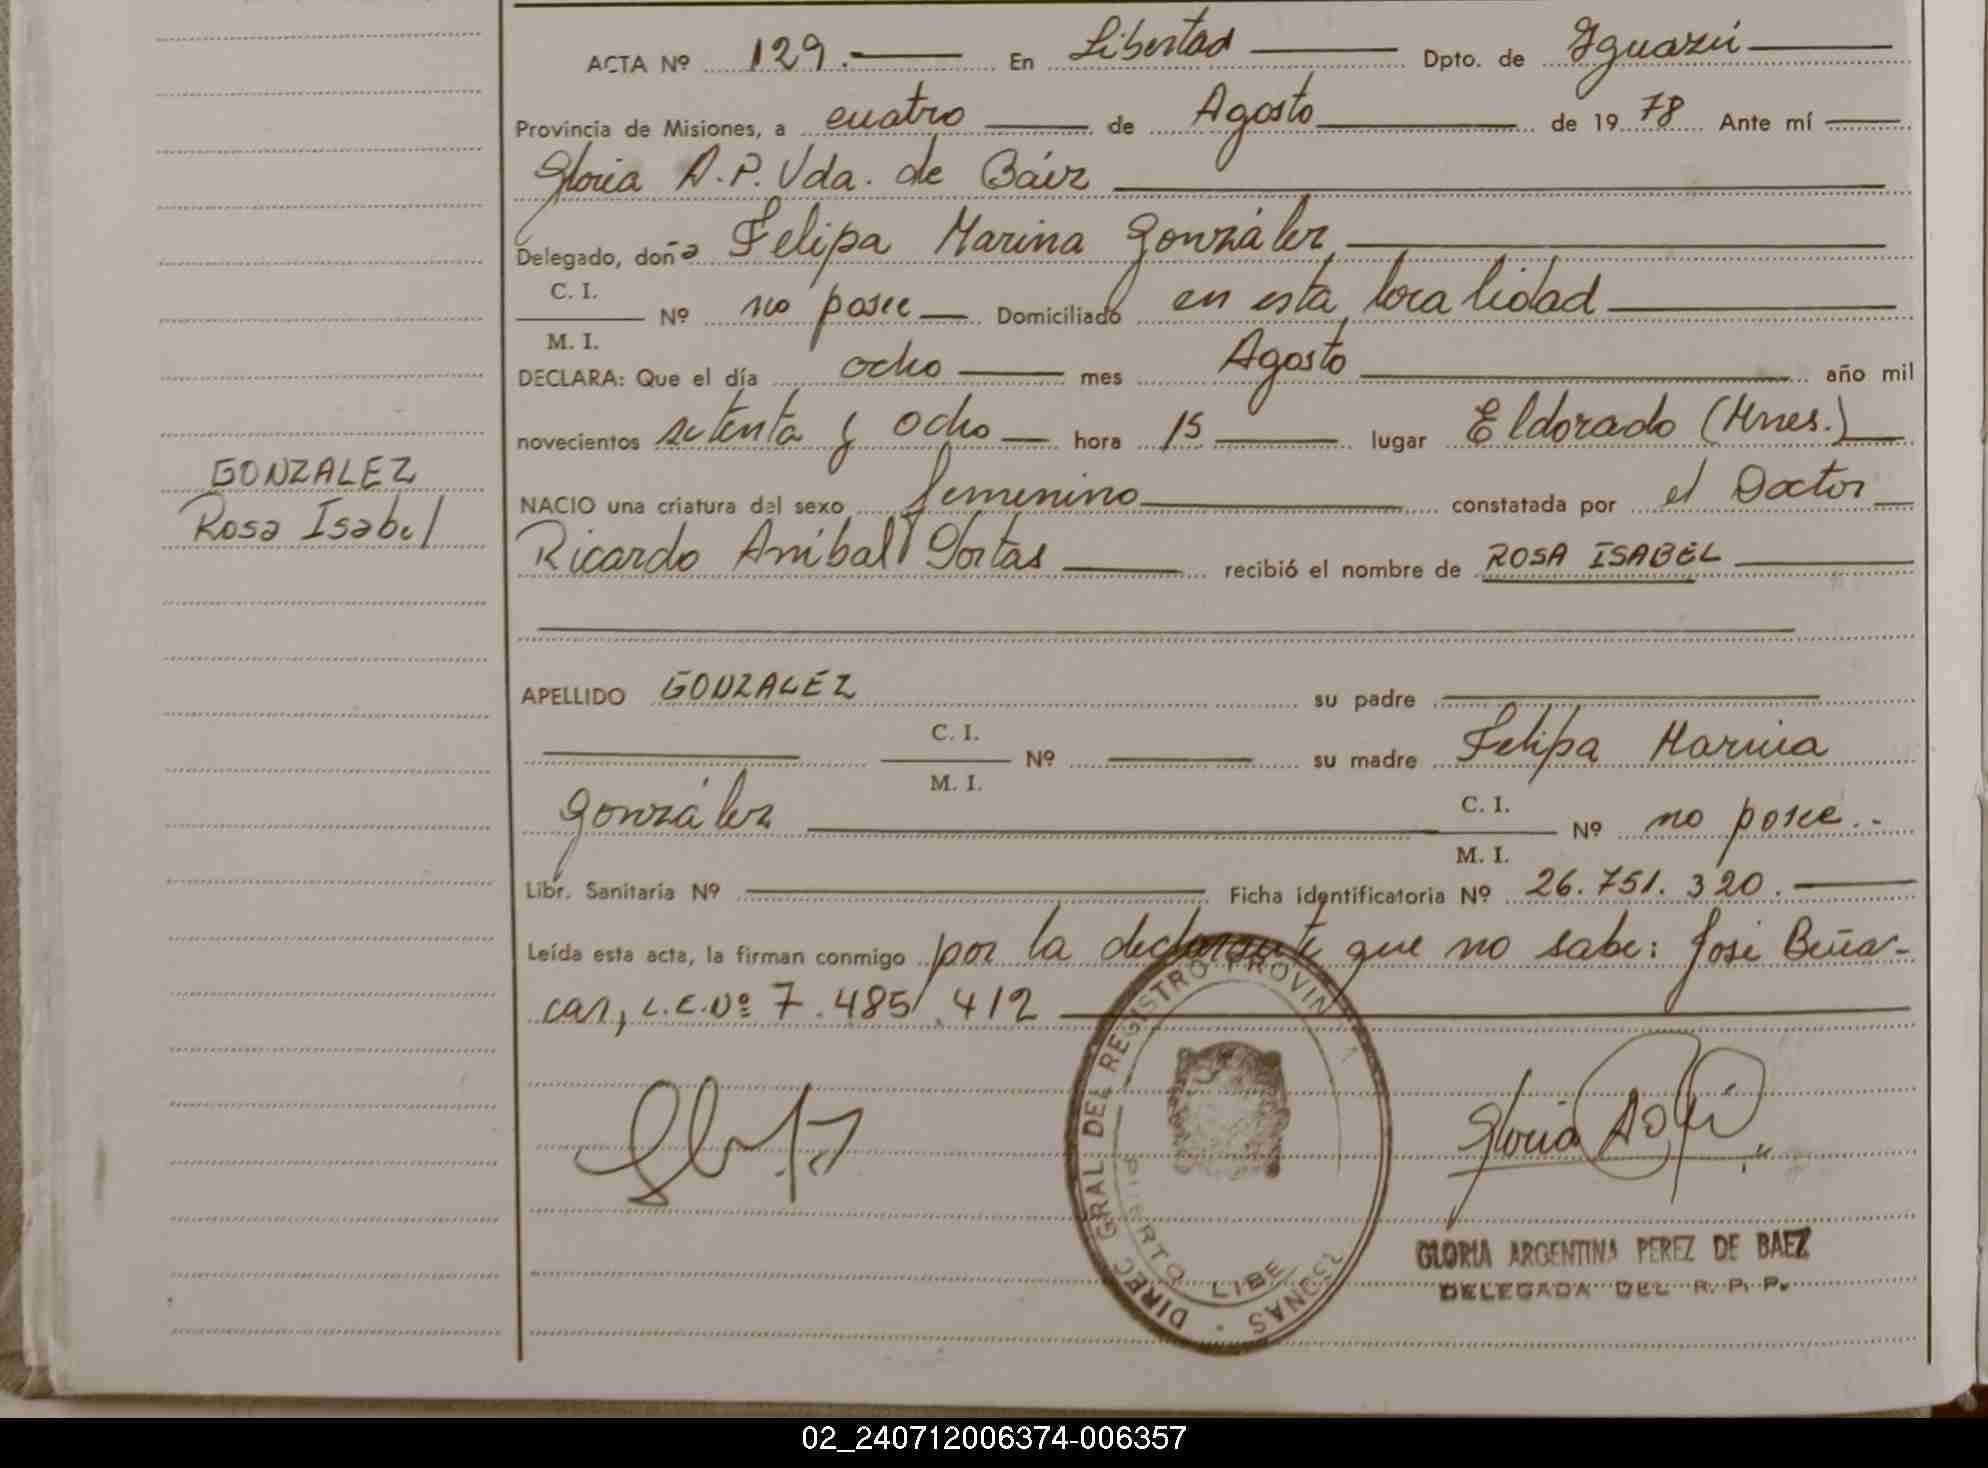 ACTA Nº 129. En Libertad Dpto. de Iguazú
Provincia de Misiones, a cuatro de Agosto de 19 78 Ante mí
Gloria A.P. Vda. de Báez
Delegado, doña Felipa Marina González
C. I.
Nº no posee Domiciliado en esta localidad
M. I.
DECLARA: Que el día ocho mes Agosto año mil
novecientos setenta y ocho hora 15 lugar Eldorado (Mnes.)
GONZALEZ
NACIO una criatura del sexo femenino constatada por el Doctor
Rosa Isabel
Ricardo Anibal recibió el nombre de ROSA ISABEL
APELLIDO GONZALEZ su padre
C. I.
Nº su madre Felipa Marina
M. I.
González C. I. Nº no posee.-
M. I.
Libr. Sanitaria Nº Ficha identificatoria Nº 26.751.320.
Leída esta acta, la firman conmigo por la declarante que no sabe: José Beña-
car, L.E.Nº 7.485.412
DIREC. GRAL DEL REGISTRO PROVIN
PUERTO LIBE
Gloria
GLORIA ARGENTINA PEREZ DE BAEZ
DELEGADA DEL R. P. P.
02_240712006374-006357